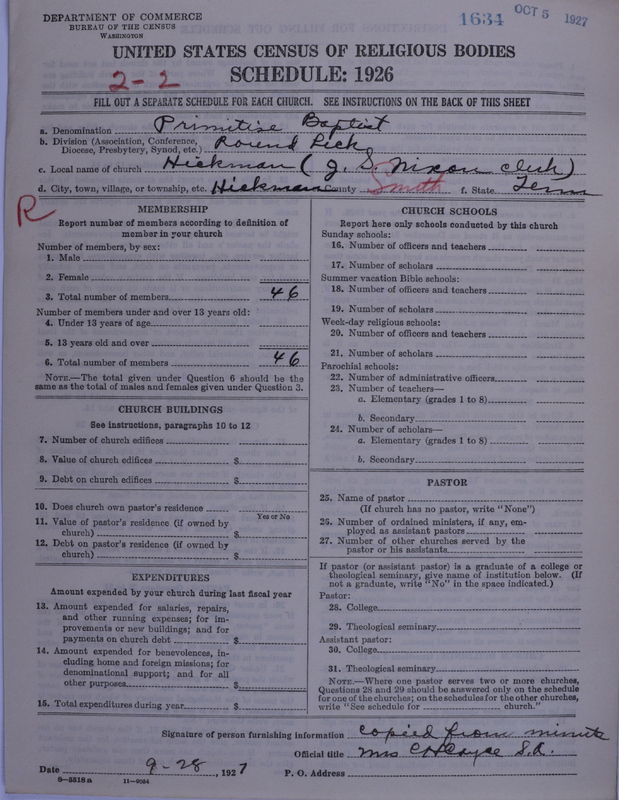 DEPARTMENT OF COMMERCE
BUREAU OF THE CENSUS
WASHINGTON
1634 OCT 5 1927
UNITED STATES CENSUS OF RELIGIOUS BODIES
SCHEDULE: 1926
2-2
FILL OUT A SEPARATE SCHEDULE FOR EACH CHURCH. SEE INSTRUCTIONS ON THE BACK OF THIS SHEET
a. Denomination Primitive Baptist
b. Division (Association, Conference, Diocese, Presbytery, Synod, etc.) Round Lick
c. Local name of church Hickman (J. S. Nixon clerk)
d. City, town, village, or township, etc. Hickman County Smith f. State Tenn
R
MEMBERSHIP
Report number of members according to definition of
member in your church
Number of members, by sex:
1. Male
2. Female
3. Total number of members 46
Number of members under and over 13 years old:
4. Under 13 years of age
5. 13 years old and over
6. Total number of members 46
NOTE.—The total given under Question 6 should be
same as the total of males and females given under Question 3.
CHURCH BUILDINGS
See instructions, paragraphs 10 to 12
7. Number of church edifices
8. Value of church edifices $
9. Debt on church edifices $
10. Does church own pastor's residence
Yes or No
11. Value of pastor's residence (if owned by
church) $
12. Debt on pastor's residence (if owned by
church) $
EXPENDITURES
Amount expended by your church during last fiscal year
13. Amount expended for salaries, repairs,
and other running expenses; for im-
provements or new buildings; and for
payments on church debt $
14. Amount expended for benevolences, in-
cluding home and foreign missions; for
denominational support; and for all
other purposes $
15. Total expenditures during year $
CHURCH SCHOOLS
Report here only schools conducted by this church
Sunday schools:
16. Number of officers and teachers
17. Number of scholars
Summer vacation Bible schools:
18. Number of officers and teachers
19. Number of scholars
Week-day religious schools:
20. Number of officers and teachers
21. Number of scholars
Parochial schools:
22. Number of administrative officers
23. Number of teachers—
a. Elementary (grades 1 to 8)
b. Secondary
24. Number of scholars—
a. Elementary (grades 1 to 8)
b. Secondary
PASTOR
25. Name of pastor
(If church has no pastor, write "None")
26. Number of ordained ministers, if any, em-
ployed as assistant pastors
27. Number of other churches served by the
pastor or his assistants
If pastor (or assistant pastor) is a graduate of a college or
theological seminary, give name of institution below. (If
not a graduate, write "No" in the space indicated.)
Pastor:
28. College
29. Theological seminary
Assistant pastor:
30. College
31. Theological seminary
NOTE.—Where one pastor serves two or more churches,
Questions 28 and 29 should be answered only on the schedule
for one of the churches; on the schedules for the other churches,
write "See schedule for church."
Signature of person furnishing information copied from minute
Official title Mrs C H Cayce S.A.
Date 9-28, 1927 P. O. Address
8-5518a 11-9084